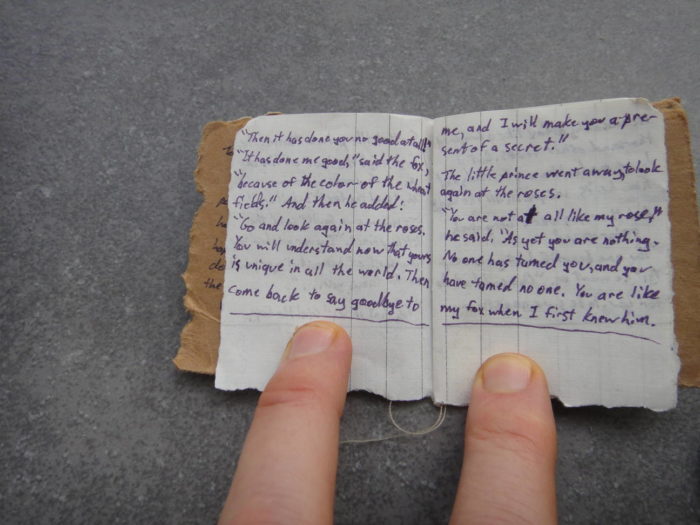 "Then it has done you no good at all!"
"It has done me good," said the fox,
"because of the color of the wheat
fields." And then he added:
"Go and look again at the roses.
You will understand now that yours
is unique in all the world. Then
come back to say goodbye to
me, and I will make you a pre-
sent of a secret."
The little prince went away, to look
again at the roses.
"You are not at all like my rose,"
he said. "As yet you are nothing.
No one has tamed you, and you
have tamed no one. You are like
my fox when I first knew him.